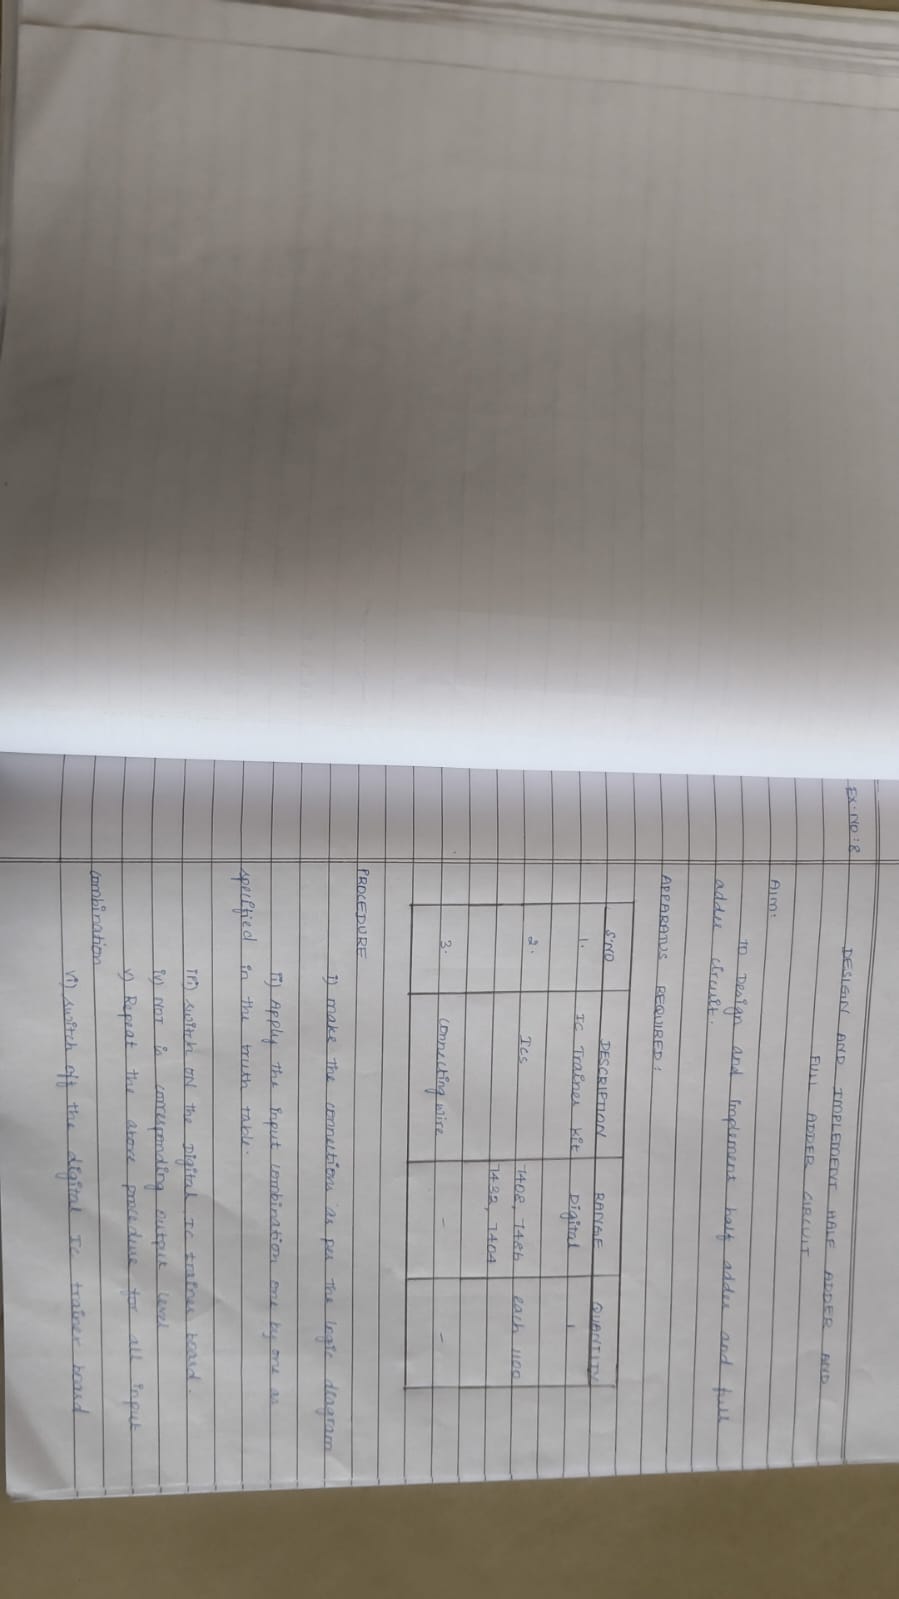 EX.NO:8
DESIGN AND IMPLEMENT HALF ADDER AND
FULL ADDER CIRCUIT
AIM:
TO Design and Implement half adder and full
adder circuit.
APPARATUS REQUIRED:
S.NO DESCRIPTION RANGE QUANTITY
1. IC Trainer kit Digital 1
2. Ics 7408, 7486 each
7432, 7404
3. connecting wire - -
PROCEDURE
i) make the connections as per the logic diagram
ii) Apply the input combination one by one as
specified in the truth table.
iii) switch ON the Digital Ic trainer board.
iv) NOT is corresponding output level
v) Repeat the above procedure for all input
combination
vi) switch off the digital Ic trainer board